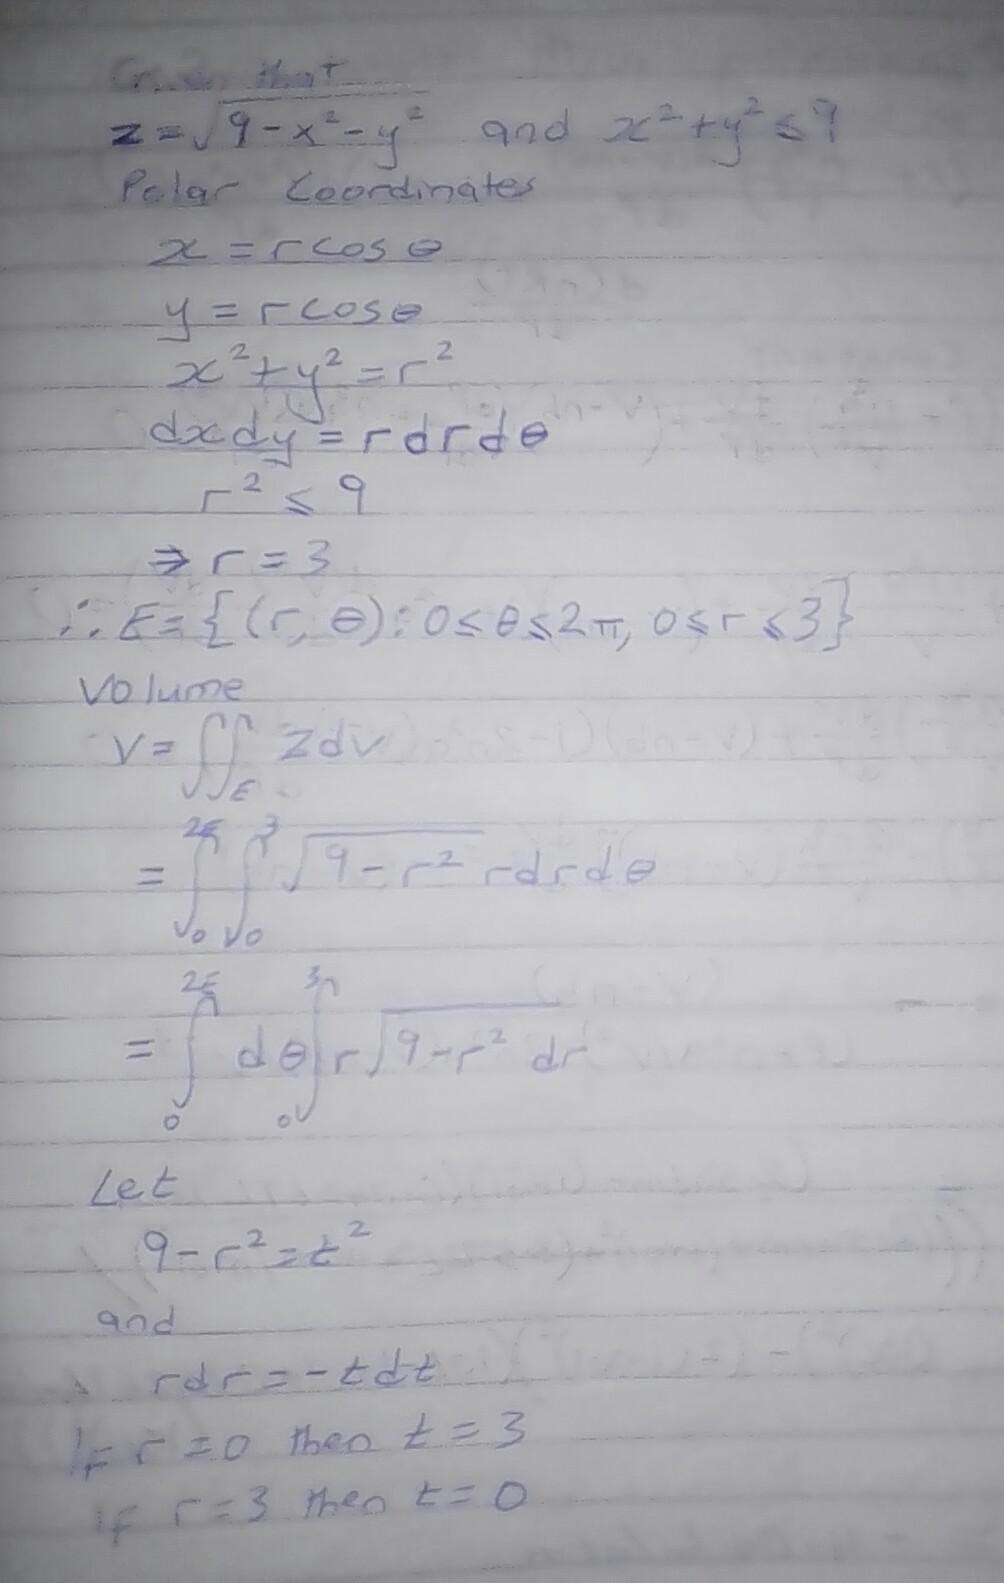 Given that
z = √(9-x²-y²) and x²+y² ≤ 9
Polar Coordinates
x = r cos θ
y = r cos θ
x²+y² = r²
dxdy = r dr dθ
r² ≤ 9
⇒ r = 3
∴ E = {(r, θ): 0≤θ≤2π, 0≤r≤3}
Volume
V = ∬_E z dv
= ∫₀^2π ∫₀^3 √(9-r²) r dr dθ
= ∫₀^2π dθ ∫₀^3 r √(9-r²) dr
Let
9-r² = t²
and
rdr = -tdt
If r = 0 then t = 3
if r = 3 then t = 0